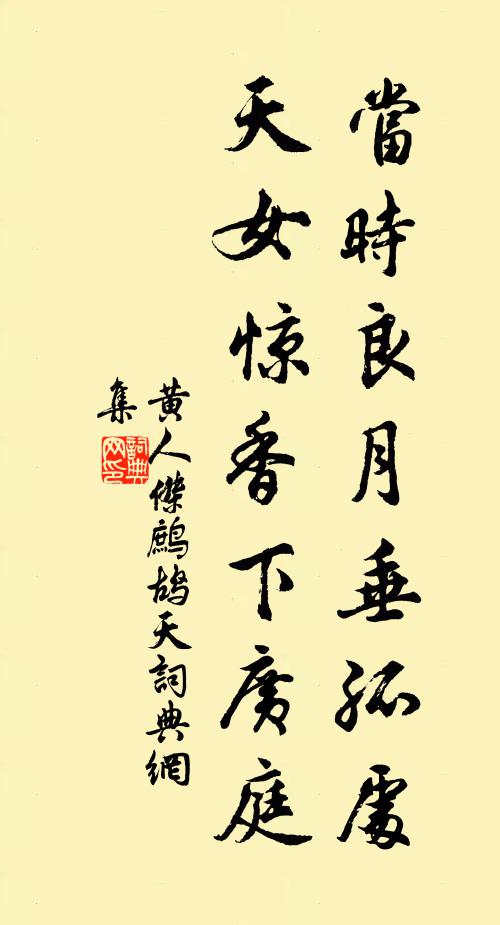 當時良月垂弧處
天女惊香下廣庭
黄人傑鷓鴣天詞典網
集
詞典
网印